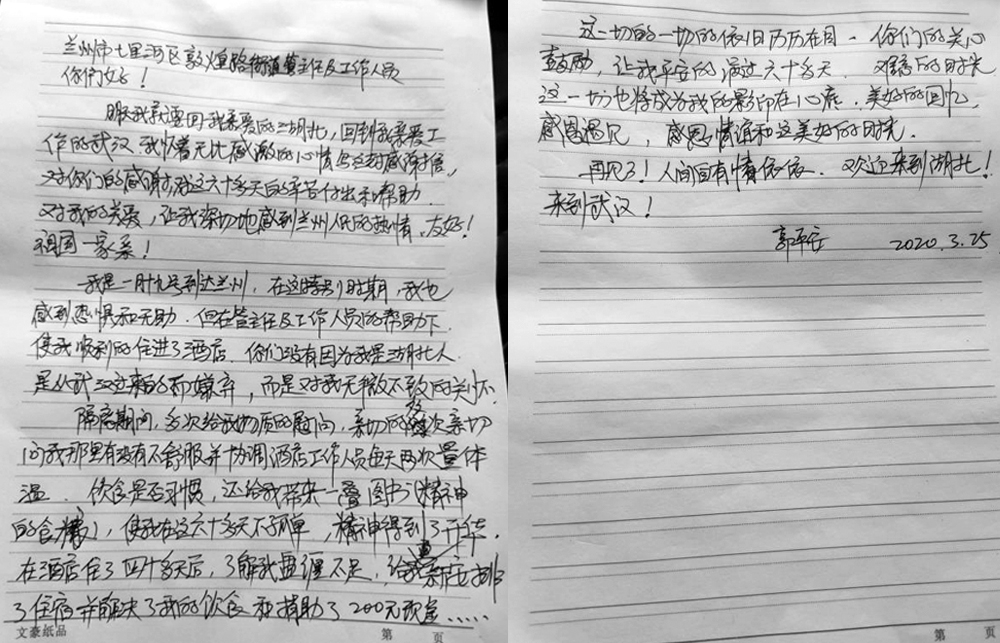 兰州市七里河区敦煌路街道管主任及工作人员
你们好！
眼我就要回我亲爱的湖北，回到我亲爱工
作的武汉.我怀着无比感激的心情写这封感谢信，
对你们的感谢，对这六十多天的辛苦付出和帮助.
对我的关爱，让我深切地感到兰州人民的热情、友好！
祖国一家亲！
我是一月十九号到达兰州，在这特别时期，我也
感到恐惧和无助.但在管主任及工作人员的帮助下.
使我顺利的住进了酒店.你们没有因为我是湖北人.
是从武汉过来的而嫌弃，而是对我无微不致的关怀.
隔离期间，多次给我物质的慰问，亲切的每次亲切
问我那里有没有不舒服并协调酒店工作人员每天两次量体
温.饮食是否习惯，还给我带来一叠图书（精神
的食粮），使我在这六十多天不孤单，精神得到了升华.
在酒店住了四十多天后，了解我盘缠不足，给我重新安排
了住宿并解决了我的饮食和捐助了200元现金……
文豪纸品 第 页
这一切的一切的依旧历历在目.你们的关心
鼓励，让我平安的满过六十多天.难忘的时光
这一切也将成为我的影印在心底.美好的回忆，
感恩遇见，感恩情谊和这美好的时光.
再见了！人间自有情依依.欢迎来到湖北！
来到武汉！
郭平安 2020.3.25
第 页